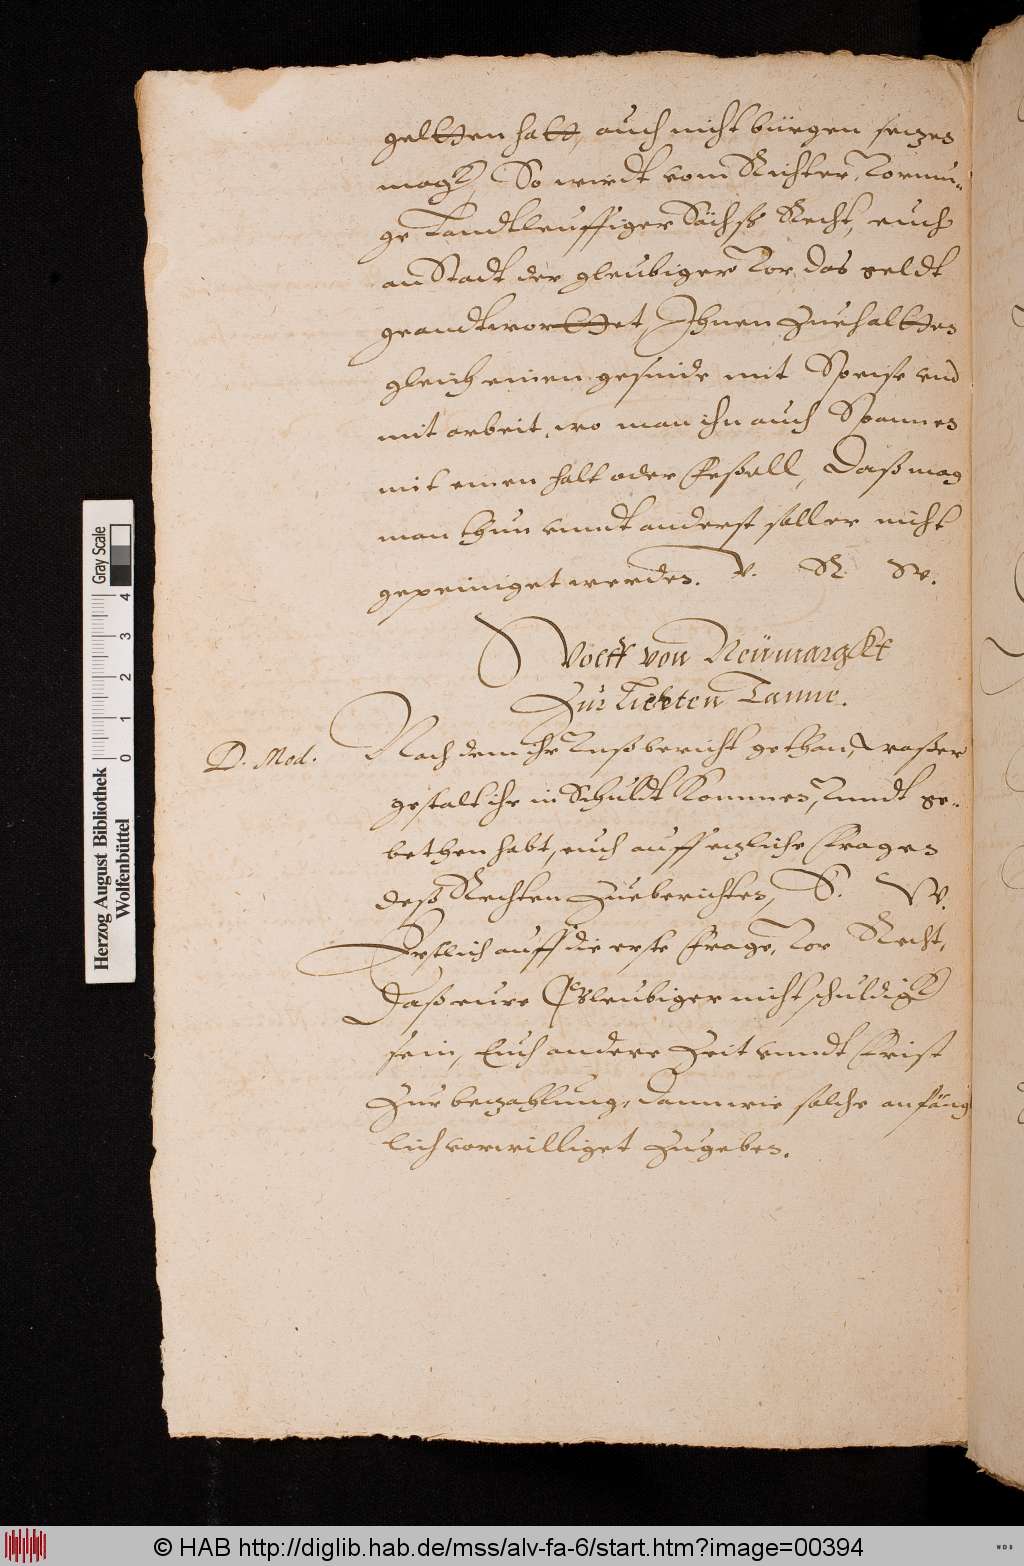 geltten hatt, auch nicht bürgen setzen
magk, So wirdt vom Richter, Vormu¬
ge Landtleuffiger Sächß Recht, euch
an Stadt der gleubiger Vor das geldt
geandtworttet, Ihnen Zuehaltten
gleich einen gesinde mit Speise vnd
mit arbeit, wo man ihn auch Spannen
mit einen halt oder feßell, Daß mag
man thun vnndt anderst soll er nicht
gepeiniget werden. V. R. W.
Wolff von Neümargkt
Zur Lichten Tanne.
D. Mod.
Nach dem ihr Vnß bericht gethan, waßer
gestalt ihr in Schuldt kommen, Vnndt ge¬
bethen habt, euch auff etzliche fragen
deß Rechten Zueberichten, S. W.
Erstlich auff die erste frage, Vor Recht,
Daß eure Gleubiger nicht schuldigk
sein, Euch andere Zeit vnndt frist
Zur betzahlung, dann wie solche anfäng
lich vorwilliget Zugeben.
Herzog August Bibliothek
Wolfenbüttel
0 1 2 3 4
Gray Scale
© HAB http://diglib.hab.de/mss/alv-fa-6/start.htm?image=00394
WDB